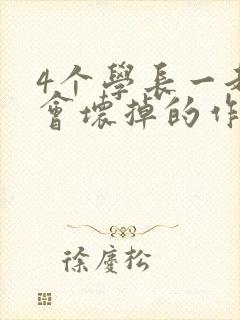 4个學長一
會壞掉的作
徐慶松